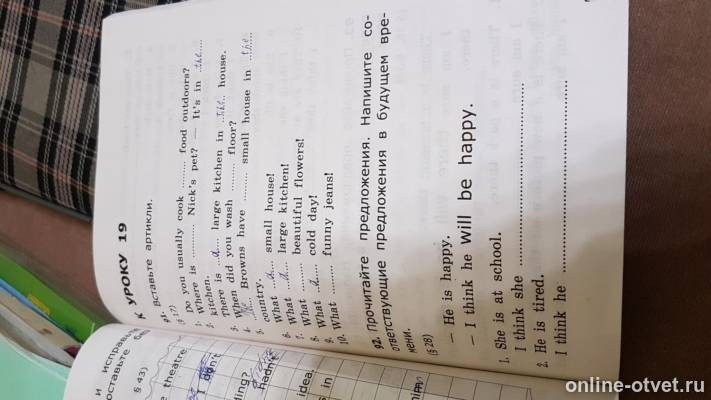 К УРОКУ 19
Вставьте артикли.
§ 17)
1. Do you usually cook ........ food outdoors?
2. Where is .......... Nick's pet? — It's in ..the....
kitchen.
3. There is .a.... large kitchen in ..the.. house.
When did you wash ........ floor?
4. Browns have ........ small house in ..the....
5. country.
6. What ..a.... small house!
7. What ..a.... large kitchen!
8. What ........ beautiful flowers!
9. What ..a.... cold day!
10. What ........ funny jeans!
92. Прочитайте предложения. Напишите со-
ответствующие предложения в будущем вре-
мени.
(§ 28)
— He is happy.
— I think he will be happy.
1. She is at school.
I think she ..............................
2. He is tired.
I think he ..............................
и исправь
оставьте
§ 43)
theatre
I don't
ding?
hadn't
idea.
in
online-otvet.ru